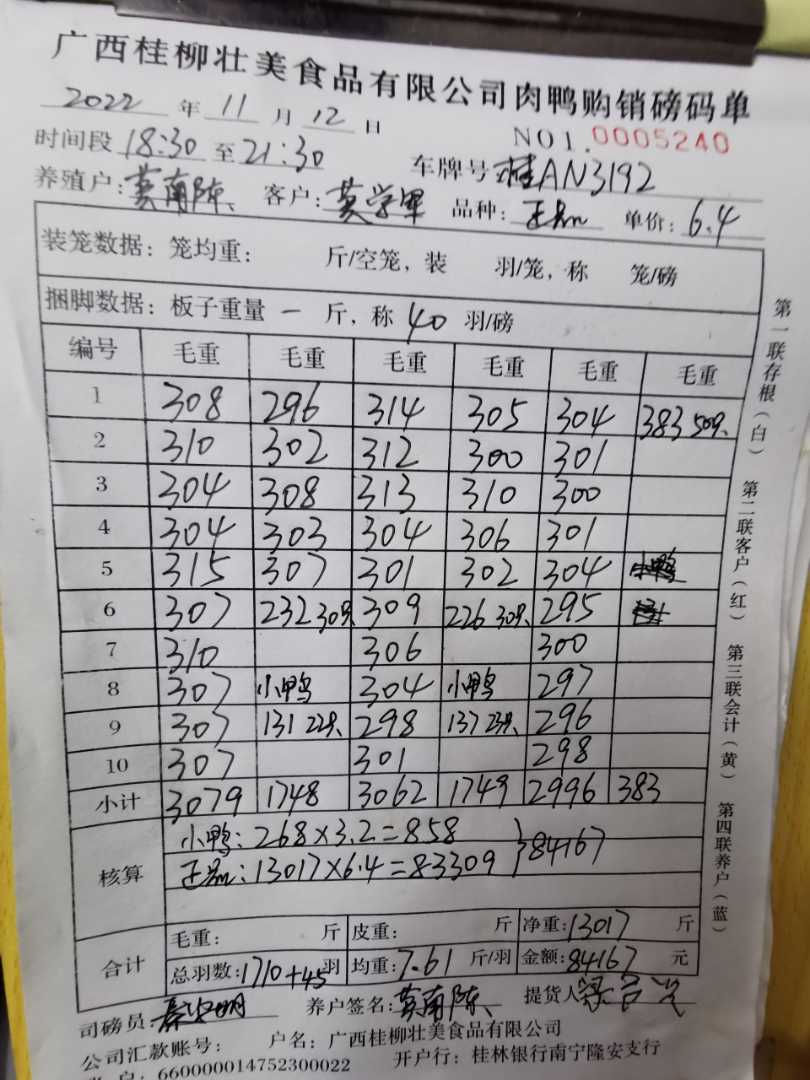 广西桂柳壮美食品有限公司肉鸭购销磅码单
2022 年 11 月 12 日 NO1.0005240
时间段 18:30 至 21:30 车牌号:桂AN3192
养殖户:莫南陈 客户:莫学军 品种: 单价:6.4
装笼数据:笼均重: 斤/空笼,装 羽/笼,称 笼/磅
捆脚数据:板子重量 一 斤,称 40 羽/磅
编号 毛重 毛重 毛重 毛重 毛重 毛重
1 308 296 314 305 304 383 50只
2 310 302 312 300 301
3 304 308 313 310 300
4 304 303 304 306 301
5 315 307 301 302 304 小鸭
6 307 232 30只 309 226 30只 295
7 310 306 300
8 307 小鸭 304 小鸭 297
9 307 131 22只 298 137 23只 296
10 307 301 298
小计 3079 1748 3062 1749 2996 383
核算 小鸭:268×3.2=858 }84167
:13017×6.4=83309
合计 毛重: 斤 皮重: 斤 净重:13017 斤
总羽数:1710+45羽 均重:7.61 斤/羽 金额:84167 元
司磅员: 养户签名:莫南陈 提货人:
公司汇款账号: 户名:广西桂柳壮美食品有限公司
660000014752300022 开户行:桂林银行南宁隆安支行
第一联存根(白) 第二联客户(红) 第三联会计(黄) 第四联养户(蓝)